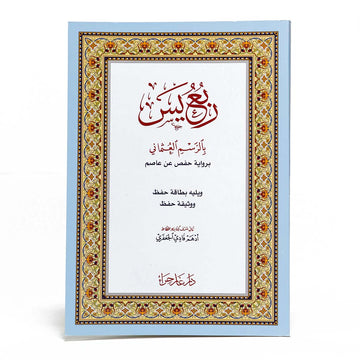 ربع يس
بالرسم العثماني
برواية حفص عن عاصم
ويليه بطاقة حفظ
ووثيقة حفظ
دار غار حراء